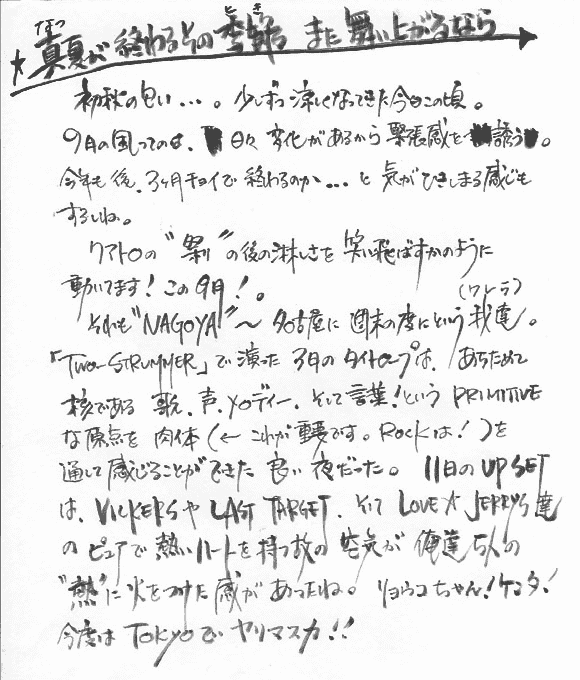 ★真夏(なつ)が終わるその季節(とき) また舞い上がるなら
初秋の匂い…。少しずつ涼しくなってきた今日この頃。
9月の風ってのは、日々変化があるから緊張感を誘う。
今年も後、3ヶ月チョイで終わるのか…と気がひきしまる感じも
するしね。
クアトロの“祭り”の後の淋しさを笑い飛ばすかのように
動いてます！この9月！。
それも“NAGOYA”〜名古屋に週末の度にという我達(ワレラ)。
「Two-STRUMMER」で演った3日のタイトロープは、あらためて
核である歌、声、メロディー、そして言葉！という PRIMITIVE
な原点を肉体(←これが重要です。Rockは！)を
通して感じることができた良い夜だった。11日のUPSET
は、VICKERSやLAST TARGET、そしてLOVE☆JERRYS達
のピュアで熱いハートを持つ故の空気が俺達5人の
“熱”に火をつけた感があったね。リョウコちゃん！ケンタ！
今度はTOKYOでヤリマスカ!!